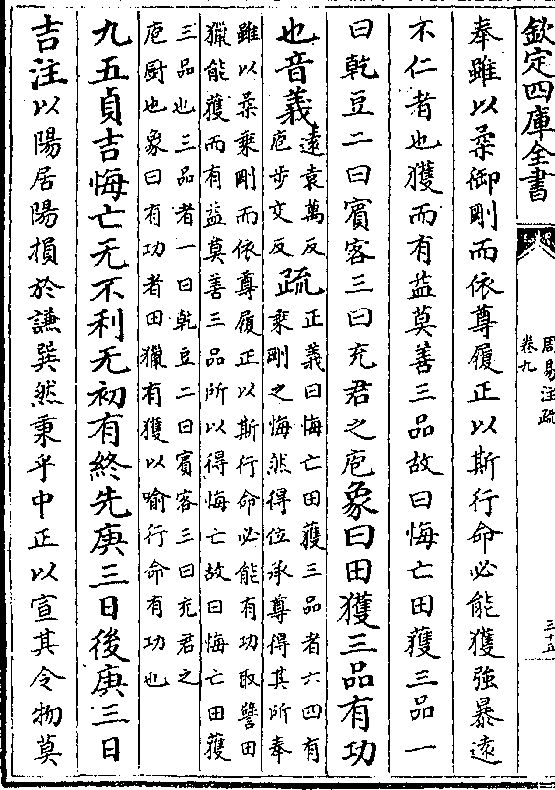 欽定四庫全書
周易注疏
卷九
三十五
奉雖以柔御剛而依尊履正以斯行命必能獲強暴遠
不仁者也獲而有益莫善三品故曰悔亡田獲三品一
曰乾豆二曰賓客三曰充君之庖象曰田獲三品有功
也音義遠袁萬反
庖步交反疏正義曰悔亡田獲三品者六四有
乘剛之悔然得位承尊得其所奉
雖以柔乘剛而依尊履正以斯行命必能有功取譬田
獵能獲而有益莫善三品所以得悔亡故曰悔亡田獲
三品也三品者一曰乾豆二曰賓客三曰充君之
庖厨也象曰有功者田獵有獲以喻行命有功也
九五貞吉悔亡无不利无初有終先庚三日後庚三日
吉注以陽居陽損於謙巽然秉乎中正以宣其令物莫